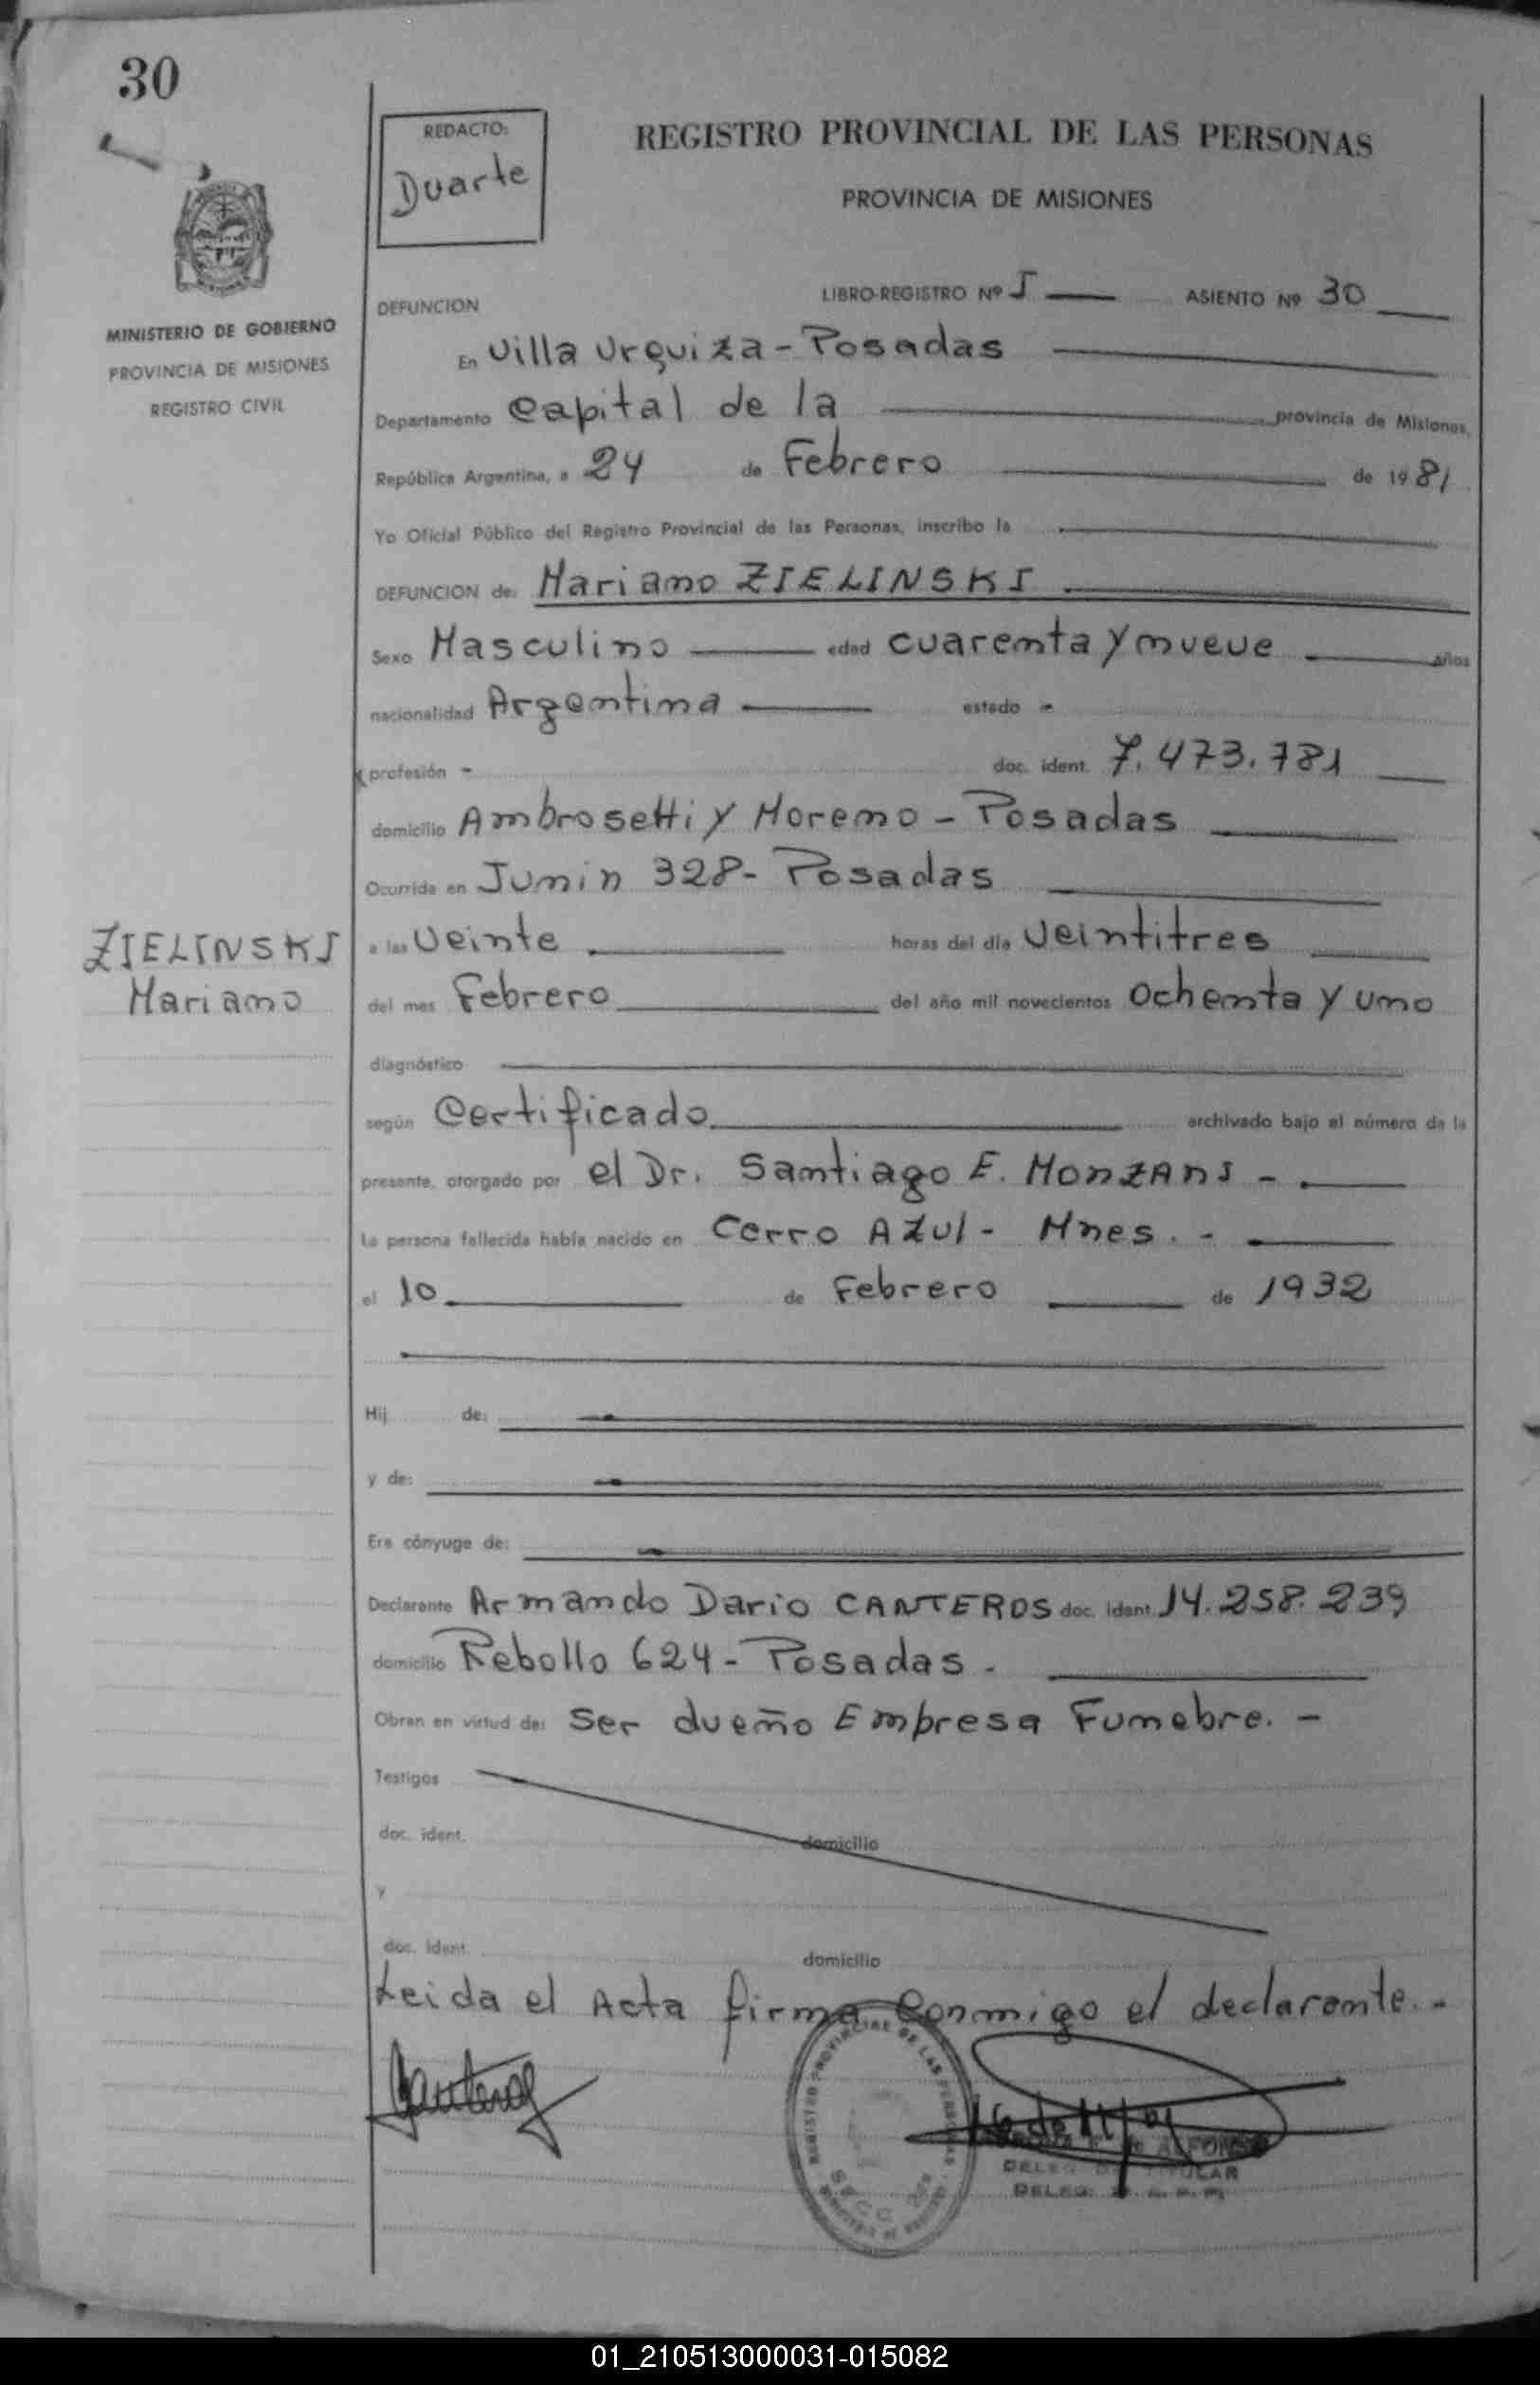 30
REDACTO:
Duarte
REGISTRO PROVINCIAL DE LAS PERSONAS
PROVINCIA DE MISIONES
MINISTERIO DE GOBIERNO
PROVINCIA DE MISIONES
REGISTRO CIVIL
DEFUNCION LIBRO-REGISTRO Nº I ASIENTO Nº 30
En Villa Urquiza - Posadas
Departamento Capital de la provincia de Misiones,
República Argentina, a 24 de Febrero de 1981
Yo Oficial Público del Registro Provincial de las Personas, inscribo la
DEFUNCION de: Mariano ZIELINSKI
Sexo Masculino edad cuarenta y nueve años
nacionalidad Argentina estado -
profesión - doc. ident. 7.473.781
domicilio Ambrosetti y Moreno - Posadas
Ocurrida en Junin 328 - Posadas
ZIELINSKI
Mariano
a las Veinte horas del día Veintitres
del mes Febrero del año mil novecientos Ochenta y uno
diagnóstico
según Certificado archivado bajo el número de la
presente, otorgado por el Dr. Santiago E. MONZANI -
La persona fallecida había nacido en Cerro Azul - Mnes. -
el 10 de Febrero de 1932
Hij de:
y de:
Era cónyuge de:
Declarante Armando Dario CANTEROS doc. ident. 14.258.239
domicilio Rebollo 624 - Posadas -
Obran en virtud de: Ser dueño Empresa Funebre. -
Testigos
doc. ident. domicilio
y
doc. ident. domicilio
Leida el Acta firma Conmigo el declarante. -
REGISTRO PROVINCIAL DE LAS PERSONAS
ALFONSO
TITULAR
DELEG.
01_210513000031-015082